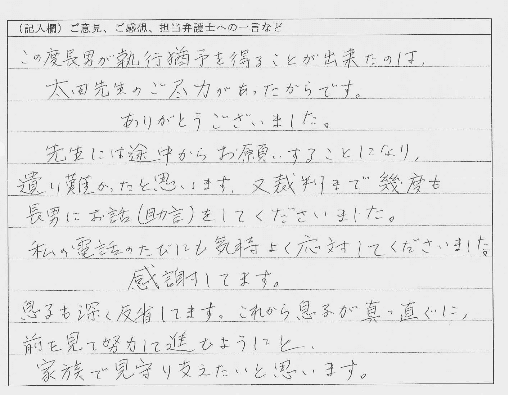 （記入欄）ご意見、ご感想、担当弁護士への一言など
この度長男が執行猶予を得ることが出来たのは、
太田先生のご尽力があったからです。
ありがとうございました。
先生には途中からお願いすることになり、
遣り難かったと思います。又裁判まで幾度も
長男にお話(助言)をしてくださいました。
私の電話のたびにも気持よく応対してくださいました。
感謝してます。
息子も深く反省してます。これから息子が真っ直ぐに、
前を見て努力して進むようにと、
家族で見守り支えたいと思います。